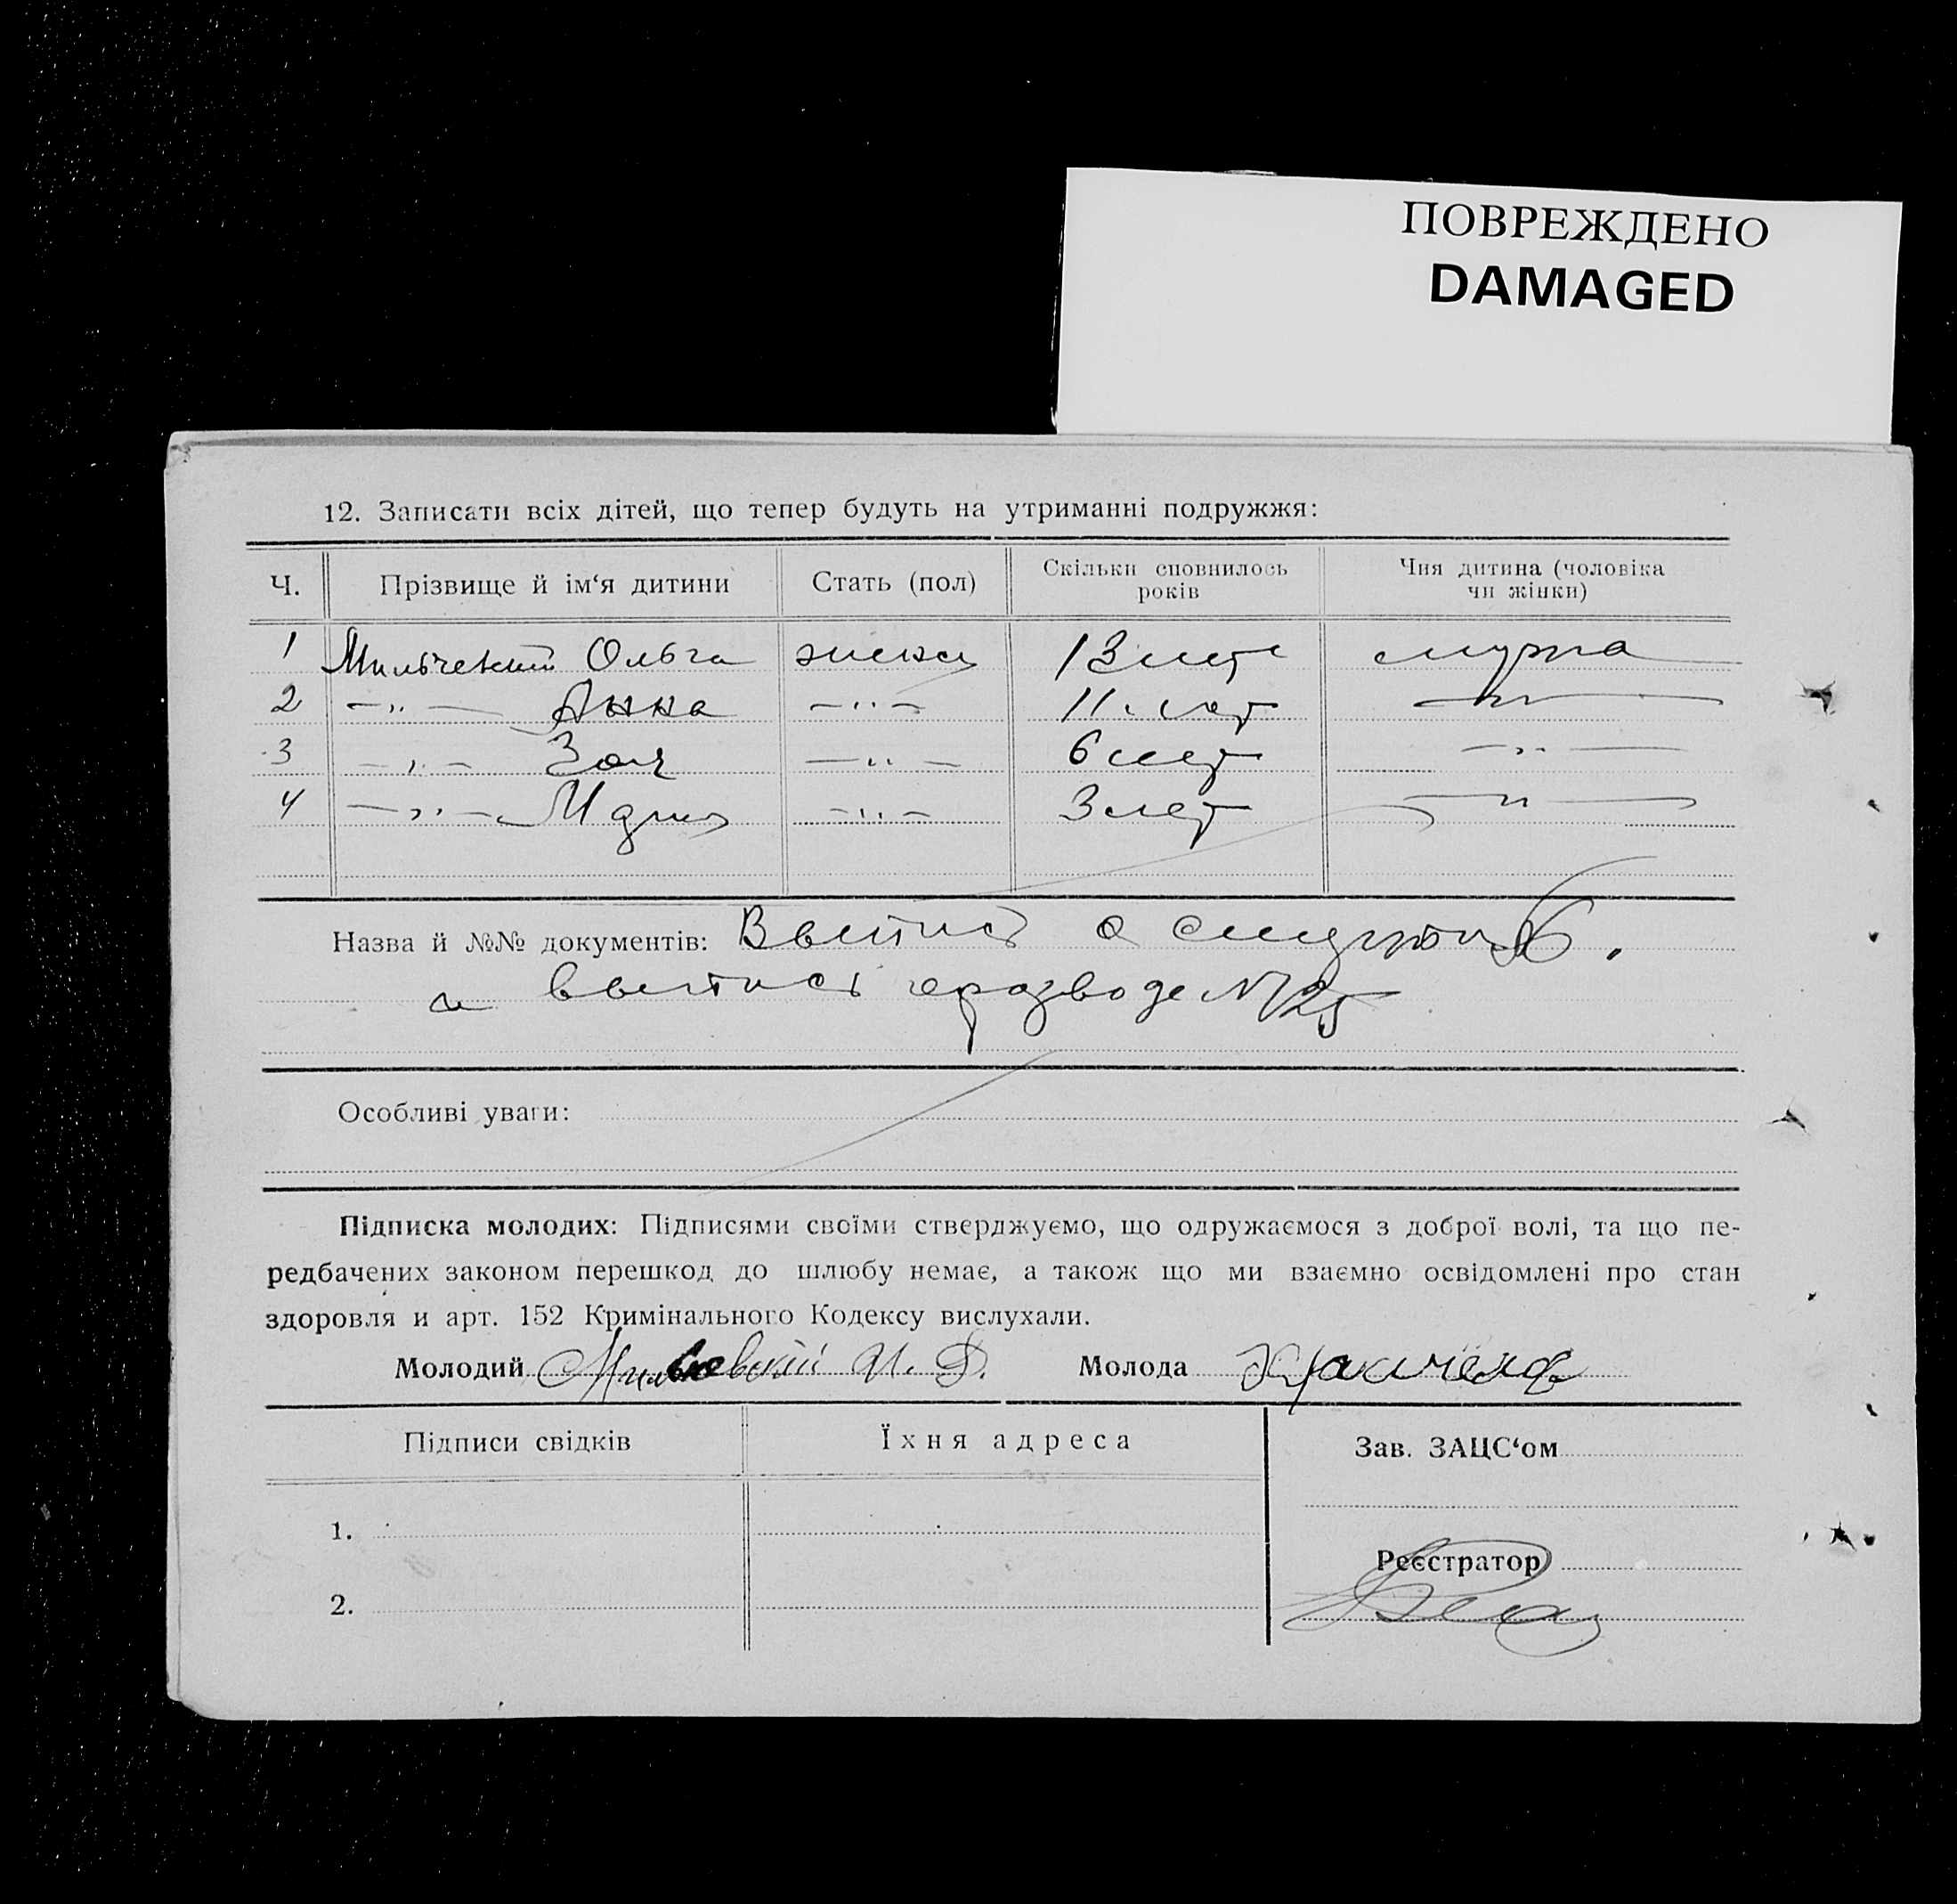 ПОВРЕЖДЕНО
DAMAGED
12. Записати всіх дітей, що тепер будуть на утриманні подружжя:
Ч. Прізвище й ім‘я дитини Стать (пол) Скільки сповнилось років Чия дитина (чоловіка чи жінки)
1 Ольга 13 лет мужа
2 —„— Анна —„— 11 лет —„—
3 —„— Зоя —„— 6 лет —„—
4 —„— Мария —„— 3 лет —„—
Назва й №№ документів: Выпись о смерти №6.
и выпись о разводе №25
Особливі уваги:
Підписка молодих: Підписями своїми стверджуємо, що одружаємося з доброї волі, та що пе-
редбачених законом перешкод до шлюбу немає, а також що ми взаємно освідомлені про стан
здоровля и арт. 152 Кримінального Кодексу вислухали.
Молодий Молода
Підписи свідків Їхня адреса Зав. ЗАЦС‘ом
1.
Реєстратор
2.